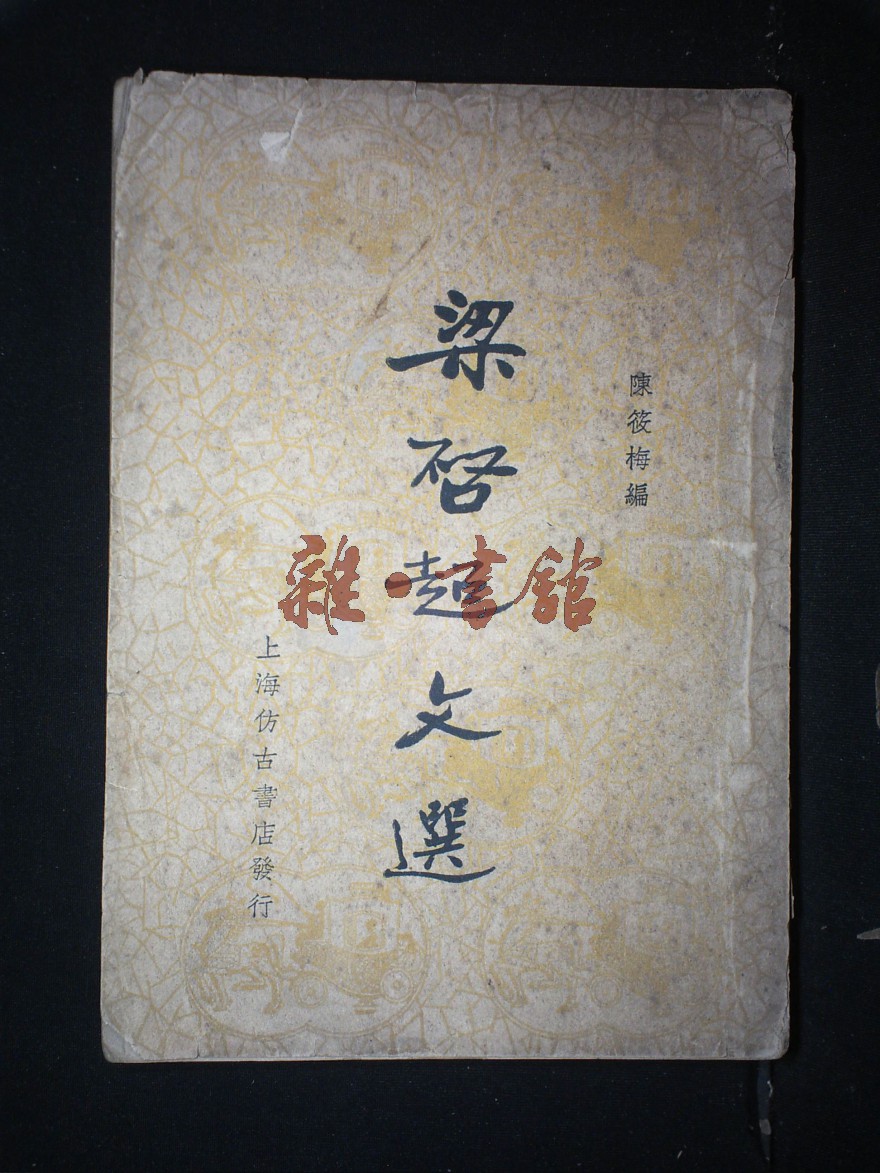 陳筱梅編
梁啓超文選
上海仿古書店發行
雜·書舘